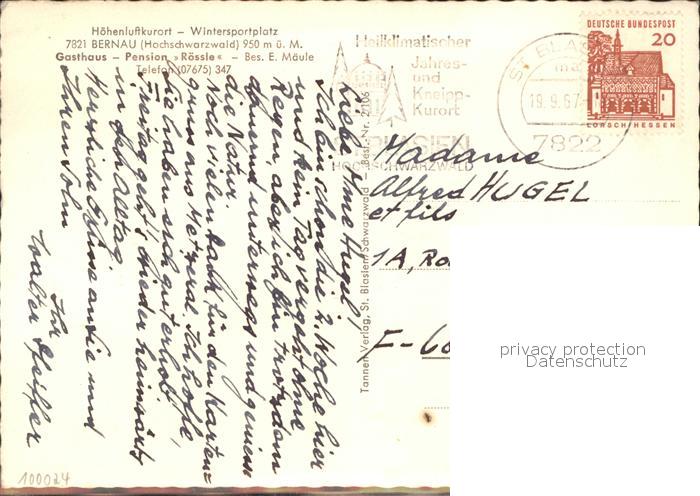 Höhenluftkurort – Wintersportplatz
7821 BERNAU (Hochschwarzwald) 950 m ü. M.
Gasthaus – Pension „Rössle“ – Bes. E. Mäule
Telefon (07675) 347
Heilklimatischer
Jahres-
und
Kneipp-
Kurort
ST. BLASIEN
HOCHSCHWARZWALD
ST. BLAS
19.9.67
7822
DEUTSCHE BUNDESPOST
20
LORSCH/HESSEN
Liebe Frau Hugel,
Ich bin schon die 2. Woche hier
und kein Tag vergeht ohne
Regen, aber ich bin trotzdem
dauernd unterwegs und geniesse
die Natur.
Noch vielen Dank für den Karten-
gruss aus Metzeral. Ich hoffe,
Sie haben sich gut erholt.
Freitag geht's wieder heimwärts
in den Alltag.
Herzliche Grüsse an Sie und
Ihren Sohn
Ihr
Walter Pfeiffer
Tannen-Verlag, St. Blasien/Schwarzwald Best.-Nr. 2/106
Madame
Alfred HUGEL
et fils
1A, Ro
F-60
privacy protection
Datenschutz
100024